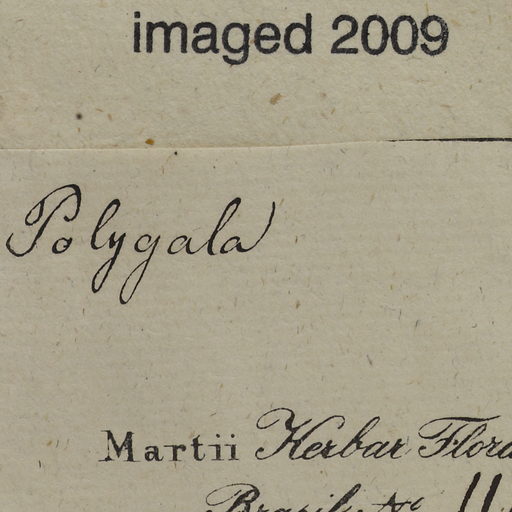 imaged 2009
Polygala
Martii Herbar Flora
Brasil. No